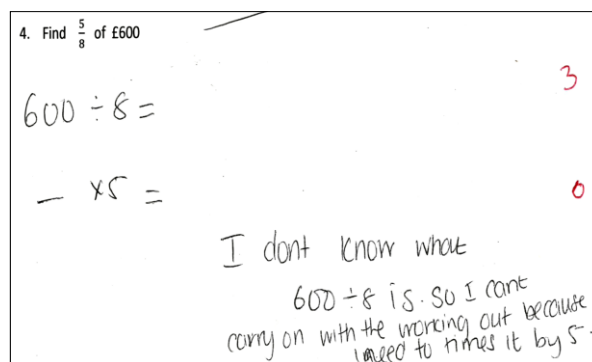 4. Find 5/8 of £600
3
600 ÷ 8 =
— ×5 =
0
I dont know what
600 ÷ 8 is. so I cant
carry on with the working out because
I need to times it by 5.